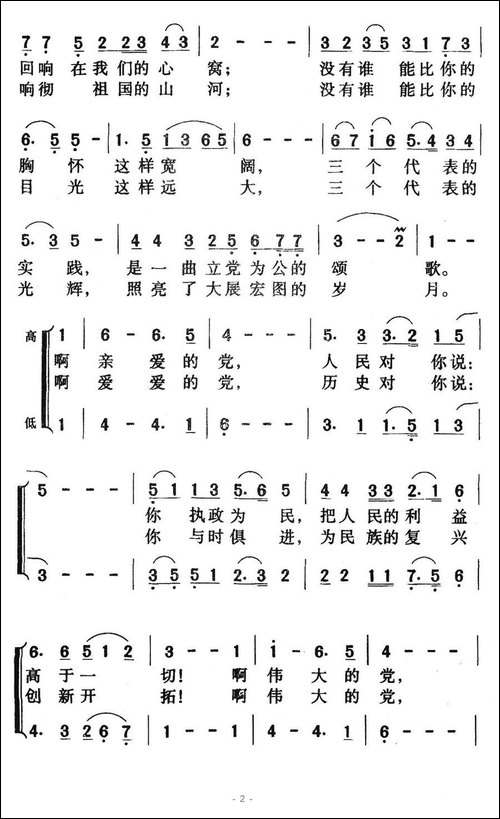 7 7 5 2 23 43 | 2 - - - | 3 2 3 5 3 1 7 3 |
回响 在我们的心 窝; 没有谁 能比你的
响彻 祖国的山 河; 没有谁 能比你的
6. 5 5 - | 1. 5 1365 | 6 - - - | 67 i 6 5. 4 34 |
胸 怀 这样宽 阔, 三 个 代 表的
目 光 这样远 大, 三 个 代 表的
5. 3 5 - | 4 4 3 225 6 77 | 3 - - 2 | 1 - - |
实 践, 是一曲立党为公的 颂 歌。
光 辉, 照亮了大展宏图的 岁 月。
高 1 | 6 - 6. 5 | 4 - - - | 5. 3 3. 2 1 5 |
啊 亲 爱 的 党, 人 民 对 你 说:
啊 爱 爱 的 党, 历 史 对 你 说:
低 1 | 4 - 4. 1 | 6 - - - | 3. 1 1. 5 1 3 |
5 - - - | 5 1 1 3 5. 6 5 | 4 4 33 2. 1 6 |
你 执政为 民, 把人民的利 益
你 与时俱 进, 为民族的复 兴
3 - - - | 3 5 5 1 2. 3 2 | 2 2 11 7. 5 6 |
6. 6 5 1 2 | 3 - - 1 | i - 6. 5 | 4 - - - |
高 于 一 切! 啊 伟 大 的 党,
创 新 开 拓! 啊 伟 大 的 党,
4. 3 2 6 7 | 1 - - 1 | 4 - 4. 1 | 6 - - - |
- 2 -